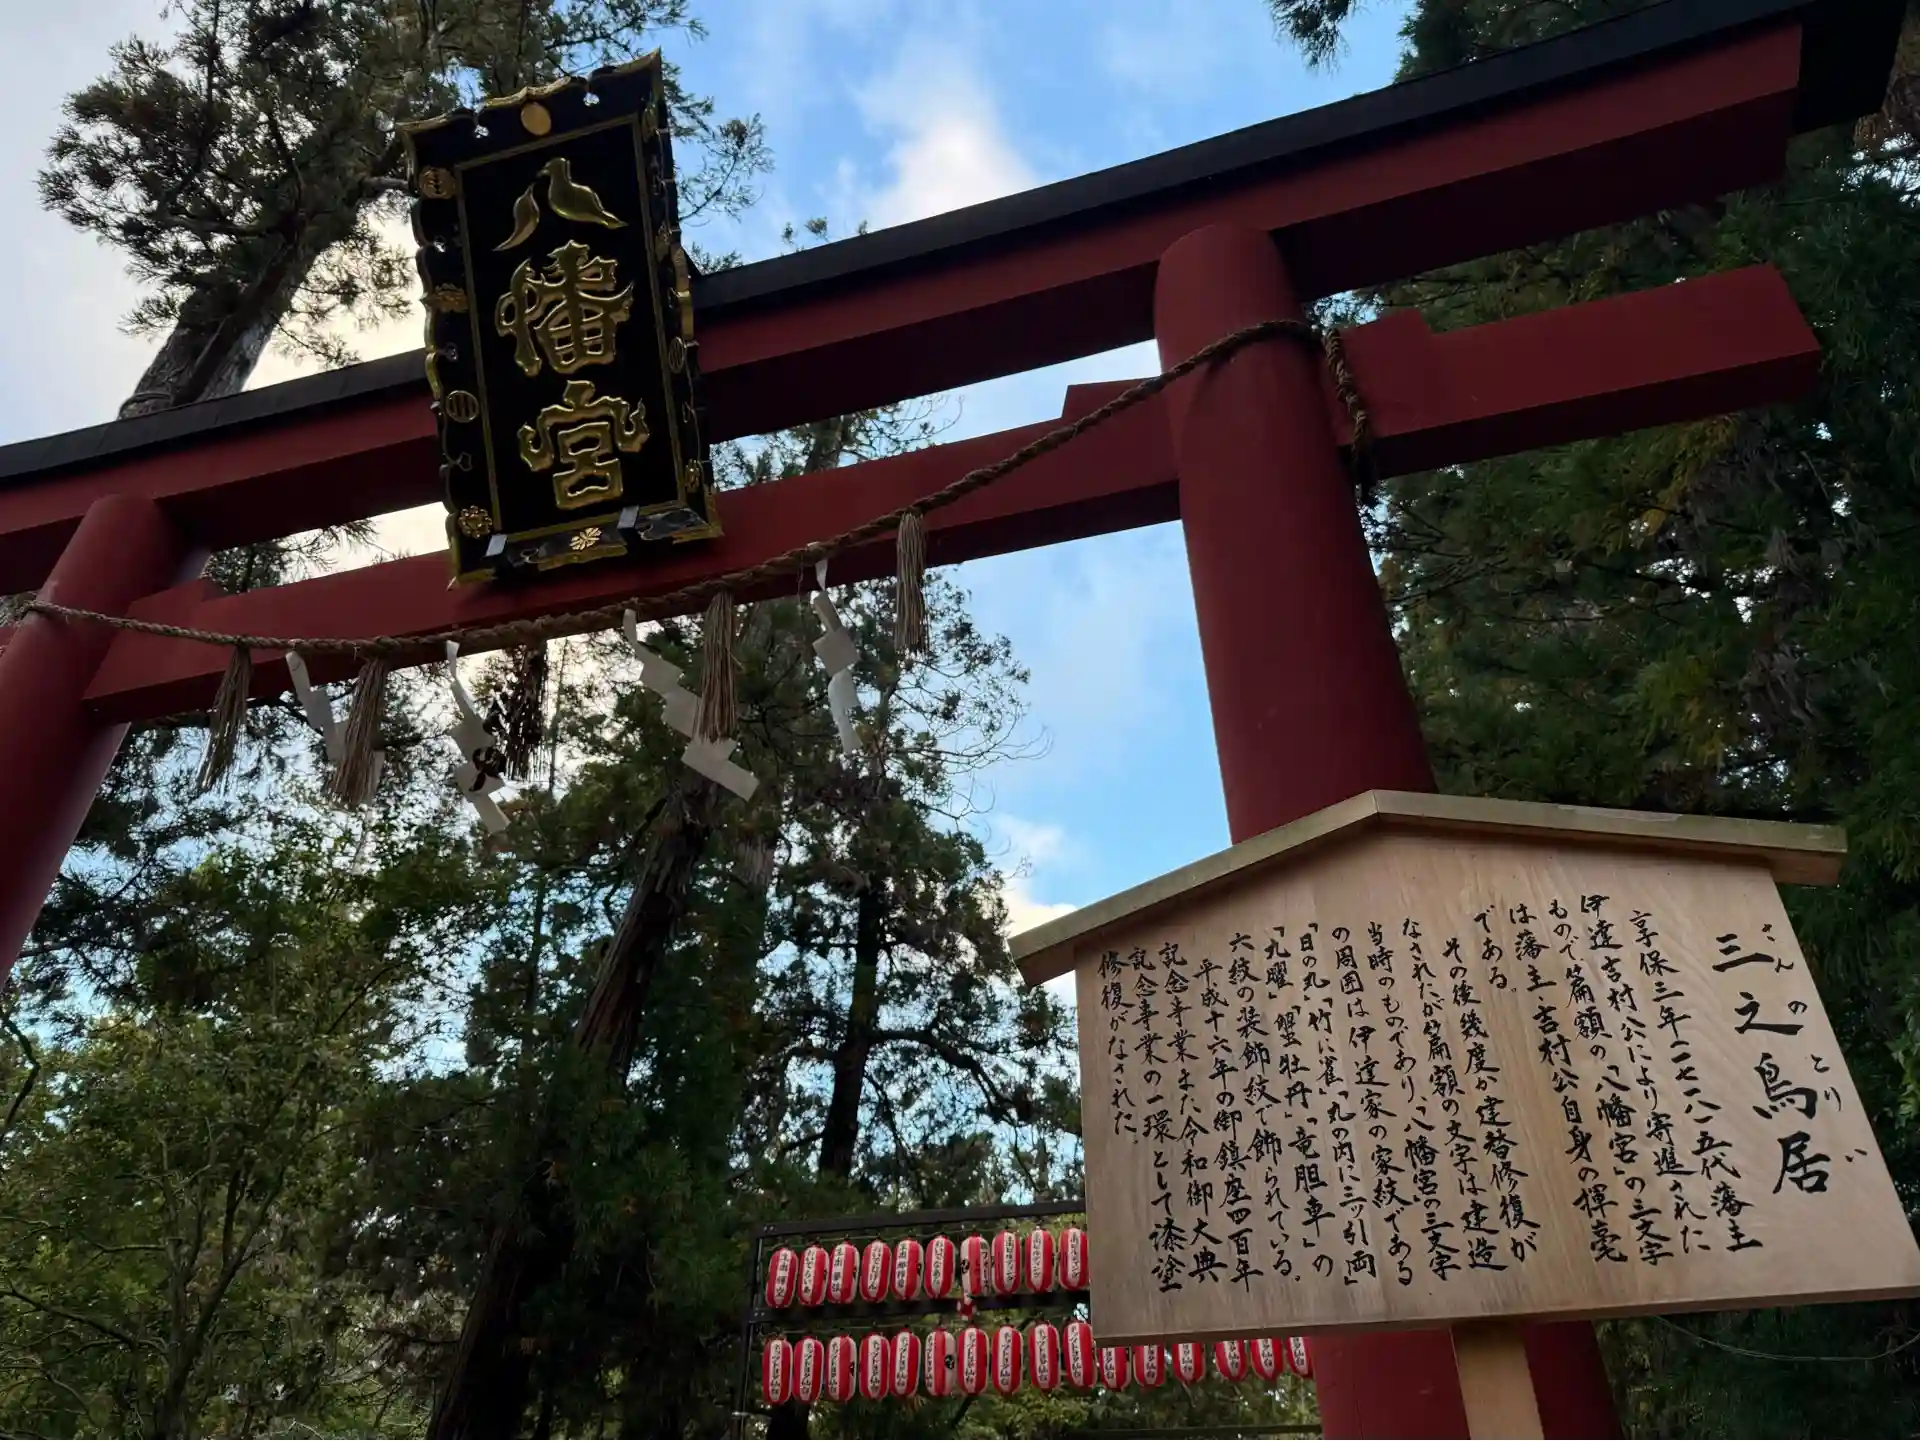 八幡宮
三之鳥居
さんのとりい
享保三年(一七一八)五代藩主
伊達吉村公により寄進された
もので、篇額の「八幡宮」の三文字
は藩主・吉村公自身の揮毫
である。
その後幾度か建替修復が
なされたが篇額の文字は建造
当時のものであり、「八幡宮」の三文字
の周囲は伊達家の家紋である
「日の丸」「竹に雀」「丸の内に三ッ引両」
「九曜」「蟹牡丹」「竜胆車」の
六紋の装飾紋で飾られている。
平成十六年の御鎮座四百年
記念事業また令和御大典
記念事業の一環として漆塗
修復がなされた。